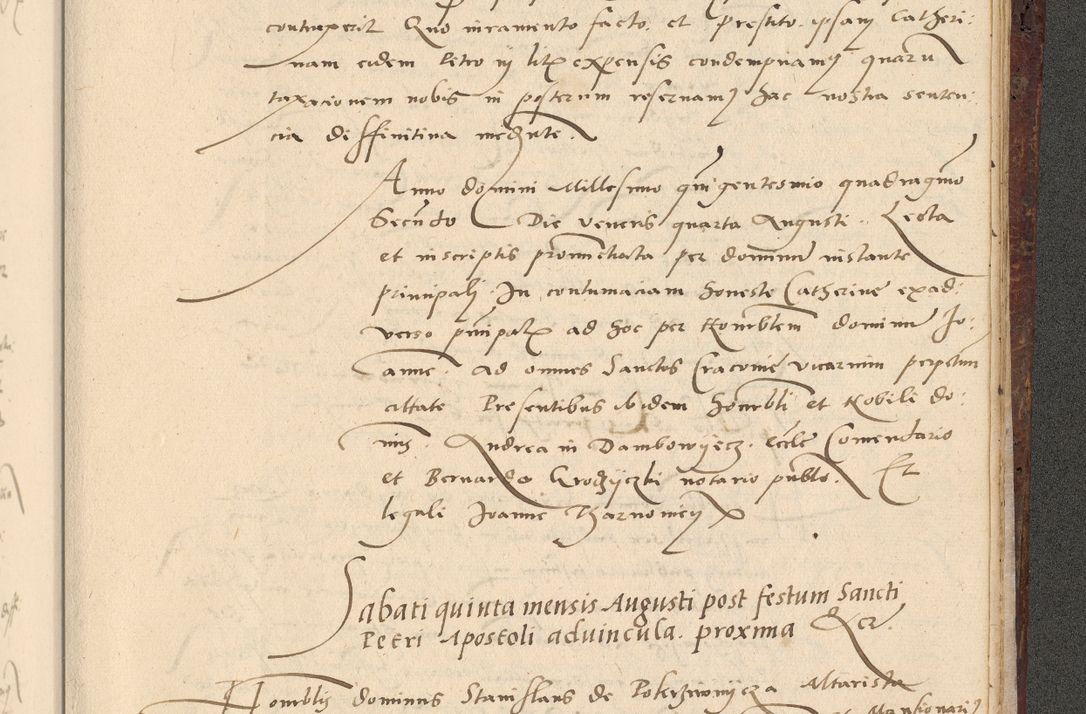 contraxerit Quo iuramento facto, et prestito. ipsam Catheri:
nam eidem Petro in litis expensis condempnamus quarum
taxacionem nobis in posterum reservamus hac nostra senten:
cia diffinitiva mediante.
Anno domini Millesimo quingentesimo quadragimo
Secundo Die veneris quarta Augusti. Lecta
et inscriptis pronunctiata per dominum instante
principali. In contumaciam honeste Catherine exad:
verso principalis ad hoc per honorabilem dominum Jo:
annem. ad omnes Sanctos Cracoviae vicarium perpetuum
citatae Presentibus ibidem honorabili et Nobili do:
minis. Andrea in Dambowyecz. ecclesie Comendario
et Bernardo Grodzyczki notario publico. Et
legali Joanne Tharnowcy
Sabati quinta mensis Augusti post festum Sancti
Petri Apostoli advincula. proxima
Honorabilis dominus Stanislaus de Pokrziwnycza Altarista
et Mansionarius